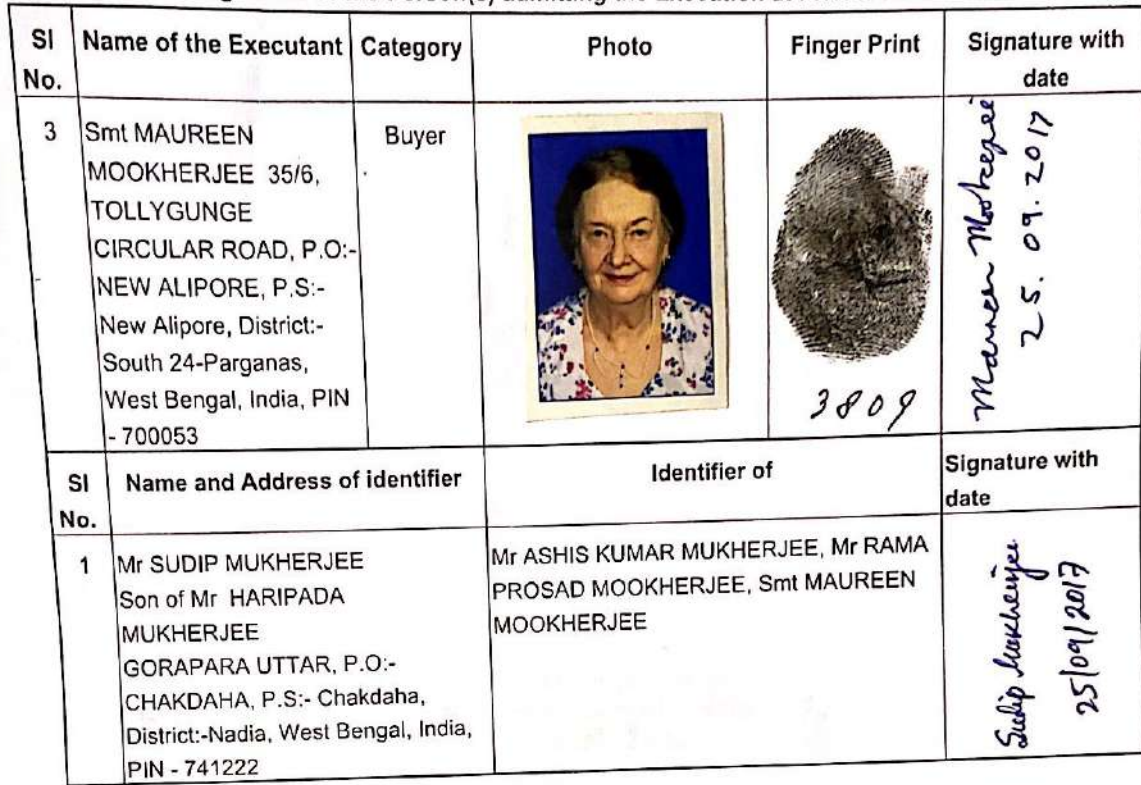 Person(s) admitting the Execution
Sl No.
Name of the Executant
Category
Photo
Finger Print
Signature with date
3
Smt MAUREEN
MOOKHERJEE 35/6,
TOLLYGUNGE
CIRCULAR ROAD, P.O:-
NEW ALIPORE, P.S:-
New Alipore, District:-
South 24-Parganas,
West Bengal, India, PIN
- 700053
Buyer
3809
Maureen Mookerjee
25.09.2017
Sl No.
Name and Address of identifier
Identifier of
Signature with date
1
Mr SUDIP MUKHERJEE
Son of Mr HARIPADA
MUKHERJEE
GORAPARA UTTAR, P.O:-
CHAKDAHA, P.S:- Chakdaha,
District:-Nadia, West Bengal, India,
PIN - 741222
Mr ASHIS KUMAR MUKHERJEE, Mr RAMA
PROSAD MOOKHERJEE, Smt MAUREEN
MOOKHERJEE
Sudip Mukherjee
25/09/2017